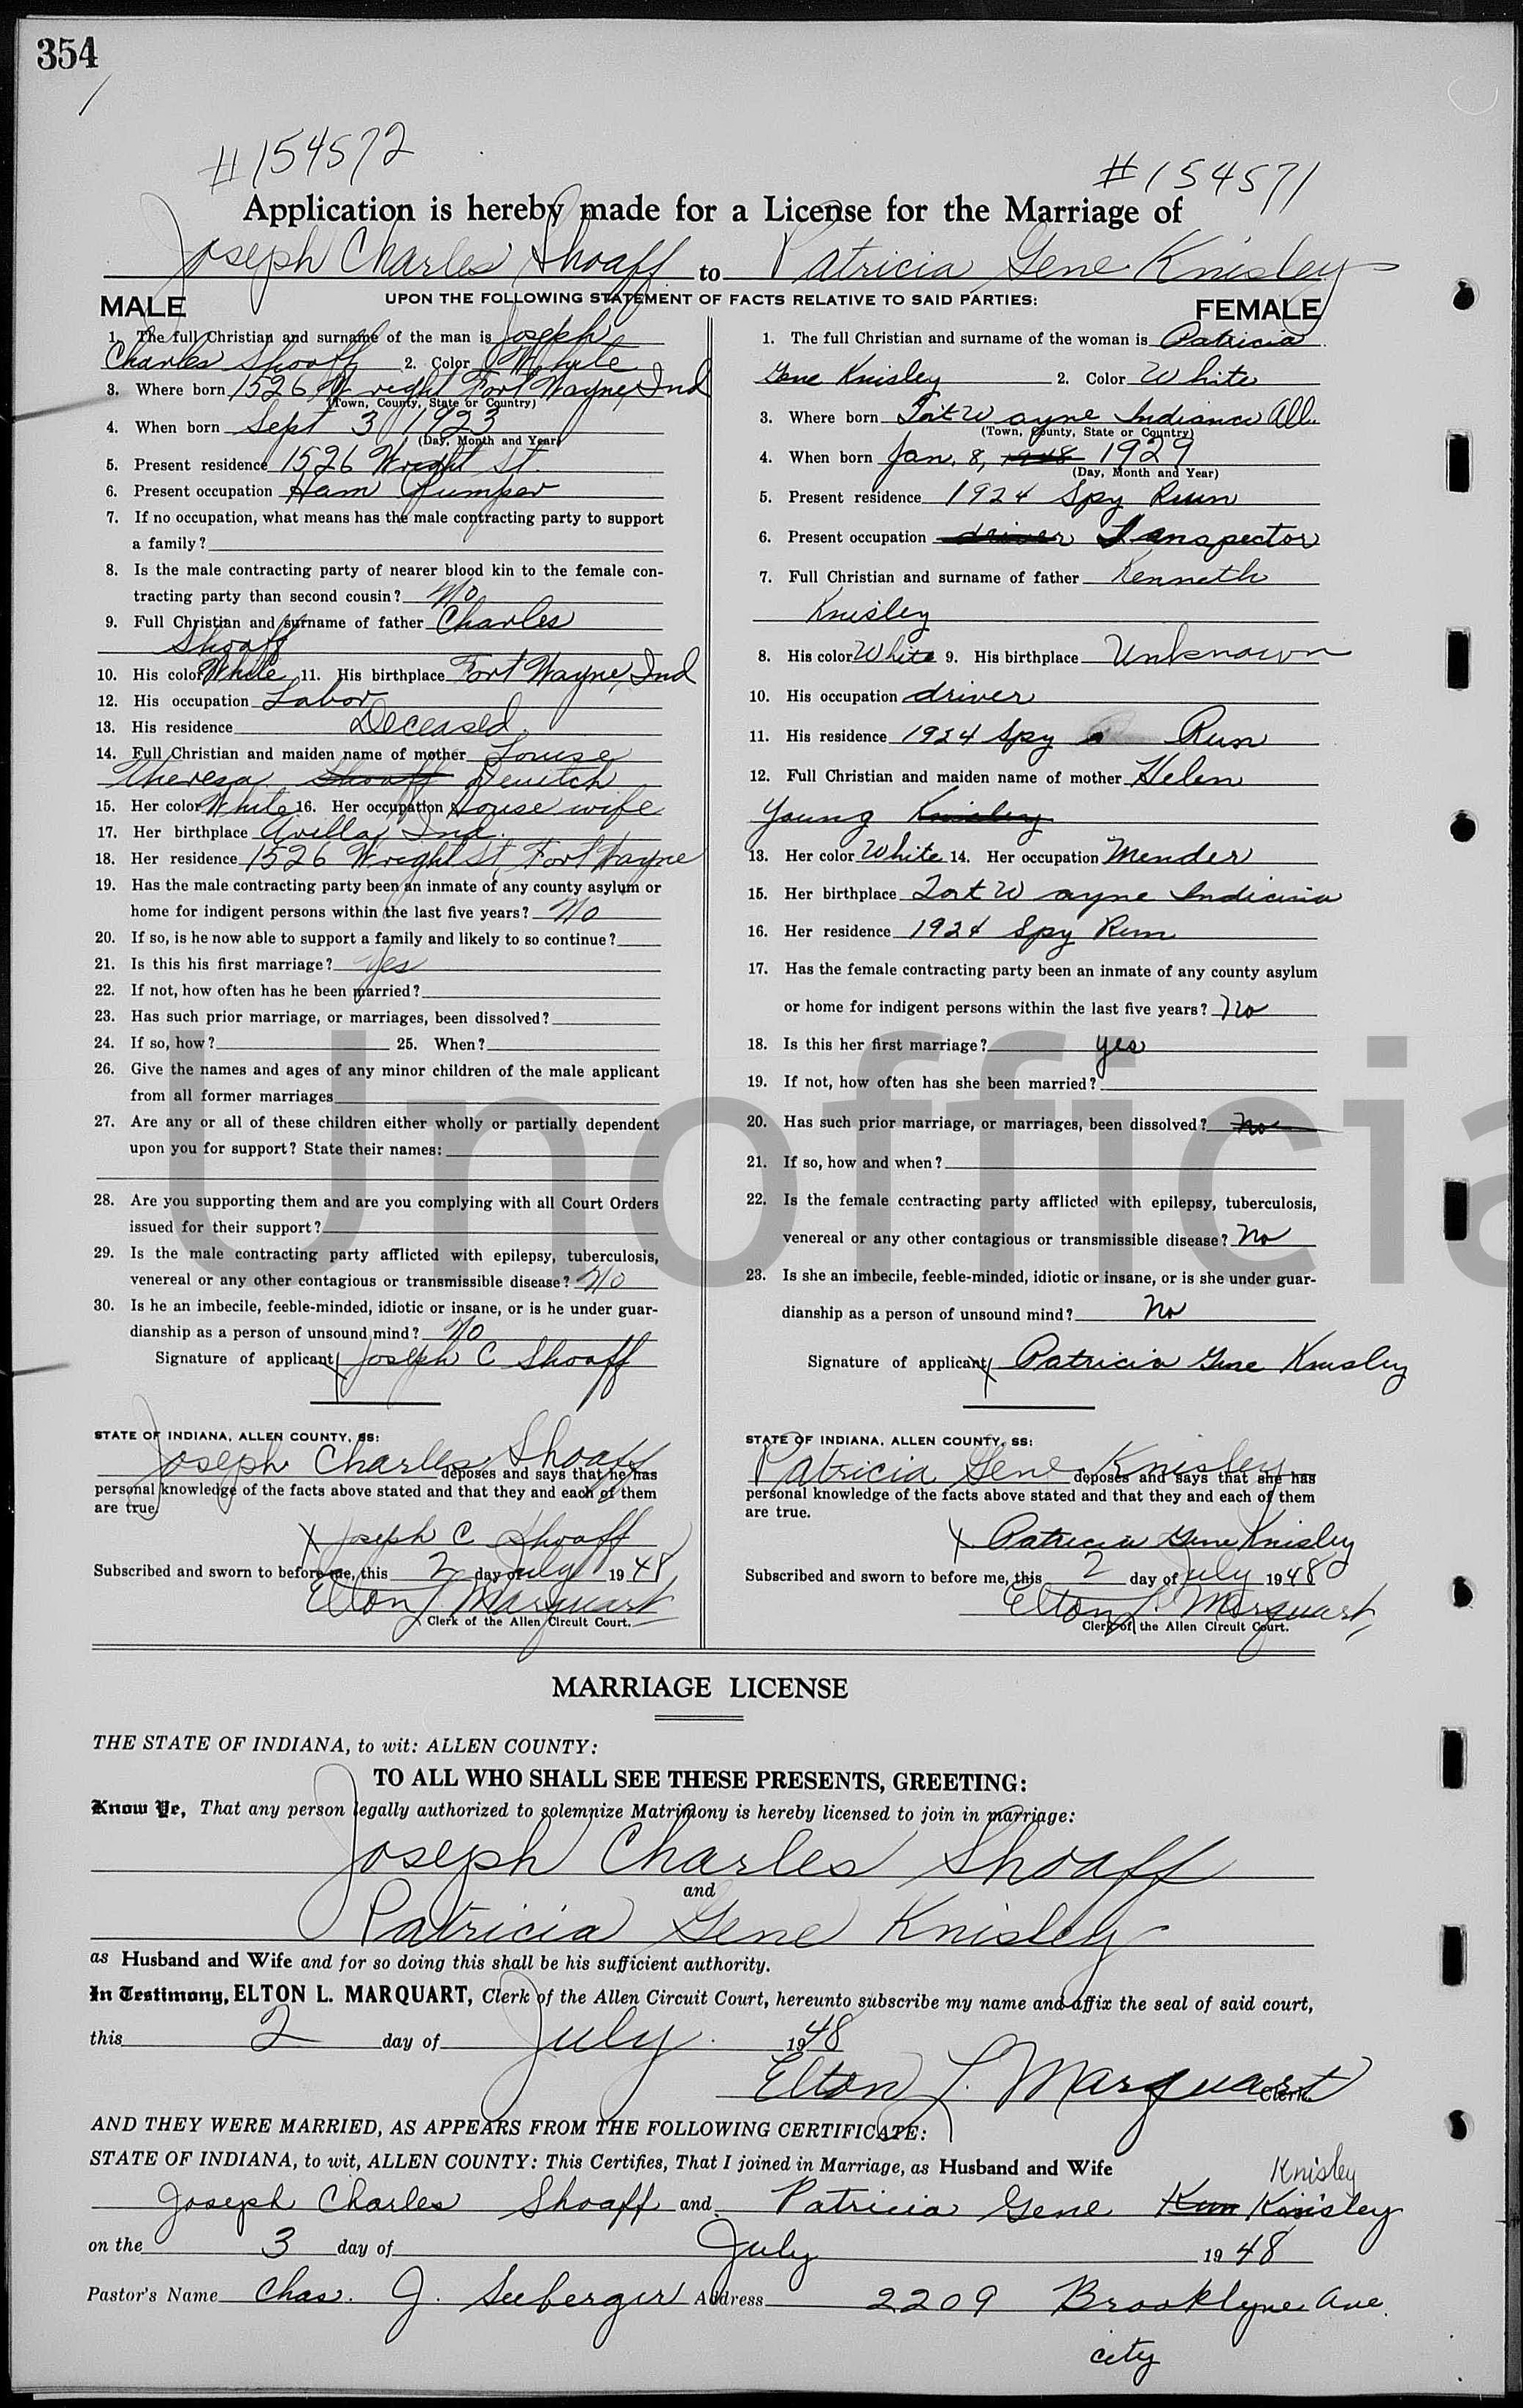 354
#154572
#154571
Application is hereby made for a License for the Marriage of
Joseph Charles Shoaff to Patricia Gene Knisley
UPON THE FOLLOWING STATEMENT OF FACTS RELATIVE TO SAID PARTIES:
MALE
1. The full Christian and surname of the man is Joseph
Charles Shoaff 2. Color White
3. Where born 1526 Wright Fort Wayne, Ind
(Town, County, State or Country)
4. When born Sept 3 1923
(Day, Month and Year)
5. Present residence 1526 Wright St.
6. Present occupation Ham Pumper
7. If no occupation, what means has the male contracting party to support
a family?
8. Is the male contracting party of nearer blood kin to the female con-
tracting party than second cousin? No
9. Full Christian and surname of father Charles
Shoaff
10. His color White 11. His birthplace Fort Wayne, Ind
12. His occupation Labor
13. His residence Deceased
14. Full Christian and maiden name of mother Louise
Theresa Shoaff
15. Her color White 16. Her occupation House wife
17. Her birthplace Avilla, Ind.
18. Her residence 1526 Wright St, Fort Wayne
19. Has the male contracting party been an inmate of any county asylum or
home for indigent persons within the last five years? No
20. If so, is he now able to support a family and likely to so continue?
21. Is this his first marriage? yes
22. If not, how often has he been married?
23. Has such prior marriage, or marriages, been dissolved?
24. If so, how? 25. When?
26. Give the names and ages of any minor children of the male applicant
from all former marriages
27. Are any or all of these children either wholly or partially dependent
upon you for support? State their names:
28. Are you supporting them and are you complying with all Court Orders
issued for their support?
29. Is the male contracting party afflicted with epilepsy, tuberculosis,
venereal or any other contagious or transmissible disease? No
30. Is he an imbecile, feeble-minded, idiotic or insane, or is he under guar-
dianship as a person of unsound mind? No
Signature of applicant Joseph C Shoaff
STATE OF INDIANA, ALLEN COUNTY, SS:
Joseph Charles Shoaff deposes and says that he has
personal knowledge of the facts above stated and that they and each of them
are true.
X Joseph C Shoaff
Subscribed and sworn to before me, this 2 day of July 1948
Elton L. Marquart
Clerk of the Allen Circuit Court.
FEMALE
1. The full Christian and surname of the woman is Patricia
Gene Knisley 2. Color White
3. Where born Fort Wayne Indiana All.
(Town, County, State or Country)
4. When born Jan. 8, 1948 1929
(Day, Month and Year)
5. Present residence 1924 Spy Run
6. Present occupation driver Ianspector
7. Full Christian and surname of father Kenneth
Knisley
8. His color White 9. His birthplace Unknown
10. His occupation driver
11. His residence 1924 Spy Run
12. Full Christian and maiden name of mother Helen
Young Knisley
13. Her color White 14. Her occupation Mender
15. Her birthplace Fort Wayne Indiana
16. Her residence 1924 Spy Run
17. Has the female contracting party been an inmate of any county asylum
or home for indigent persons within the last five years? No
18. Is this her first marriage? yes
19. If not, how often has she been married?
20. Has such prior marriage, or marriages, been dissolved? no
21. If so, how and when?
22. Is the female contracting party afflicted with epilepsy, tuberculosis,
venereal or any other contagious or transmissible disease? No
23. Is she an imbecile, feeble-minded, idiotic or insane, or is she under guar-
dianship as a person of unsound mind? No
Signature of applicant Patricia Gene Knisley
STATE OF INDIANA, ALLEN COUNTY, SS:
Patricia Gene Knisley deposes and says that she has
personal knowledge of the facts above stated and that they and each of them
are true.
X Patricia Gene Knisley
Subscribed and sworn to before me, this 2 day of July 1948
Elton L. Marquart
Clerk of the Allen Circuit Court.
Unofficia
MARRIAGE LICENSE
THE STATE OF INDIANA, to wit: ALLEN COUNTY:
TO ALL WHO SHALL SEE THESE PRESENTS, GREETING:
Know Ye, That any person legally authorized to solemnize Matrimony is hereby licensed to join in marriage:
Joseph Charles Shoaff
and
Patricia Gene Knisley
as Husband and Wife and for so doing this shall be his sufficient authority.
In Testimony, ELTON L. MARQUART, Clerk of the Allen Circuit Court, hereunto subscribe my name and affix the seal of said court,
this 2 day of July 1948
Elton L. Marquart Clerk
AND THEY WERE MARRIED, AS APPEARS FROM THE FOLLOWING CERTIFICATE:
STATE OF INDIANA, to wit, ALLEN COUNTY: This Certifies, That I joined in Marriage, as Husband and Wife
Knisley
Joseph Charles Shoaff and Patricia Gene Kun Kinisley
on the 3 day of July 1948
Pastor's Name Chas. J. Seeberger Address 2209 Brooklyne Ave.
city